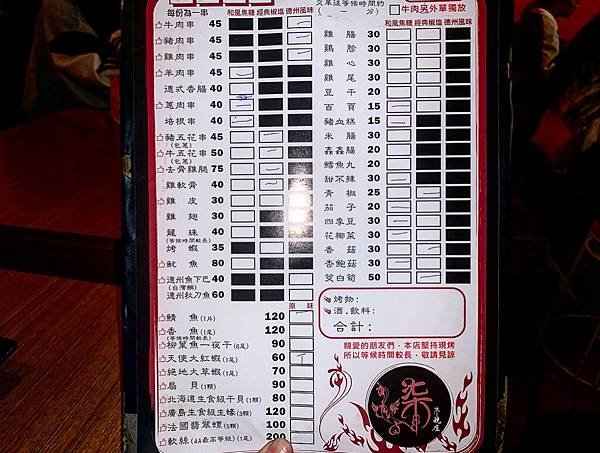 每份為一串 和風焦糖 經典椒塩 德州風味
牛肉串 45
豬肉串 45
雞肉串 45
羊肉串 45
德式香腸 40
蔥肉串 40
培根串 40
豬五花串 45
(包蔥)
牛五花串 50
(包蔥)
去骨雞腿 75
雞軟骨 40
雞皮 30
雞翅 30
龍珠 40
(等候時間較長)
烤蝦 35
魷魚 80
德州魚下巴 40
(台灣鯛)
德州秋刀魚 60
原味
鯖魚(1片) 120
香魚(1尾) 120
(等候時間較長)
柳葉魚一夜干(6尾) 90
天使大紅蝦(1尾) 60
絕地大草蝦(1尾) 70
扇貝(1顆) 90
北海道生食級干貝(1顆) 80
廣島生食級生蠔(3顆) 120
法國翡翠螺(5顆) 100
軟絲(4A最高等級)(1尾) 200
分) 牛肉另外單獨放
和風焦糖 經典椒塩 德州風味
雞腸 30
雞胗 30
雞心 30
雞尾 30
豆干 20
百頁 15
豬血糕 15
米腸 30
鑫鑫腸 20
鱈魚丸 20
甜不辣 30
青椒 25
茄子 20
四季豆 30
花椰菜 30
香菇 30
杏鮑菇 30
筊白筍 50
烤物:
酒.飲料:
合計:
親愛的朋友們,本店堅持現烤
所以等候時間較長,敬請見諒
柒
串燒屋